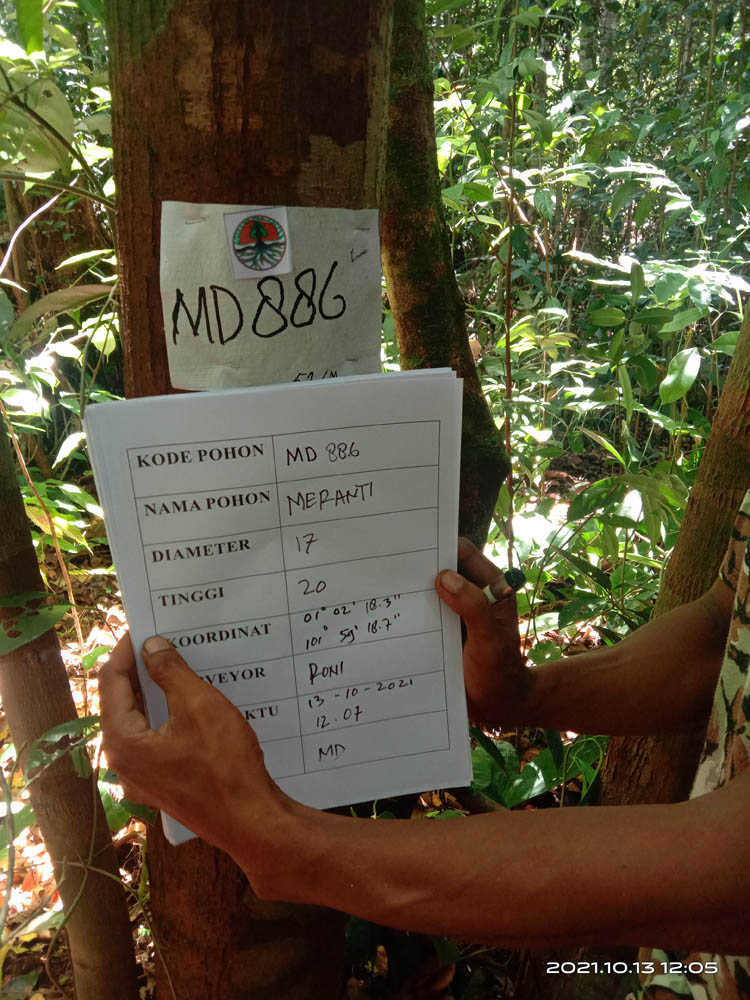 MD 886
KODE POHON MD 886
NAMA POHON MERANTI
DIAMETER 17
TINGGI 20
KOORDINAT 01° 02' 18.3"
101° 59' 18.7"
VEYOR RONI
KTU 13-10-2021
12.07
MD
2021.10.13 12:05